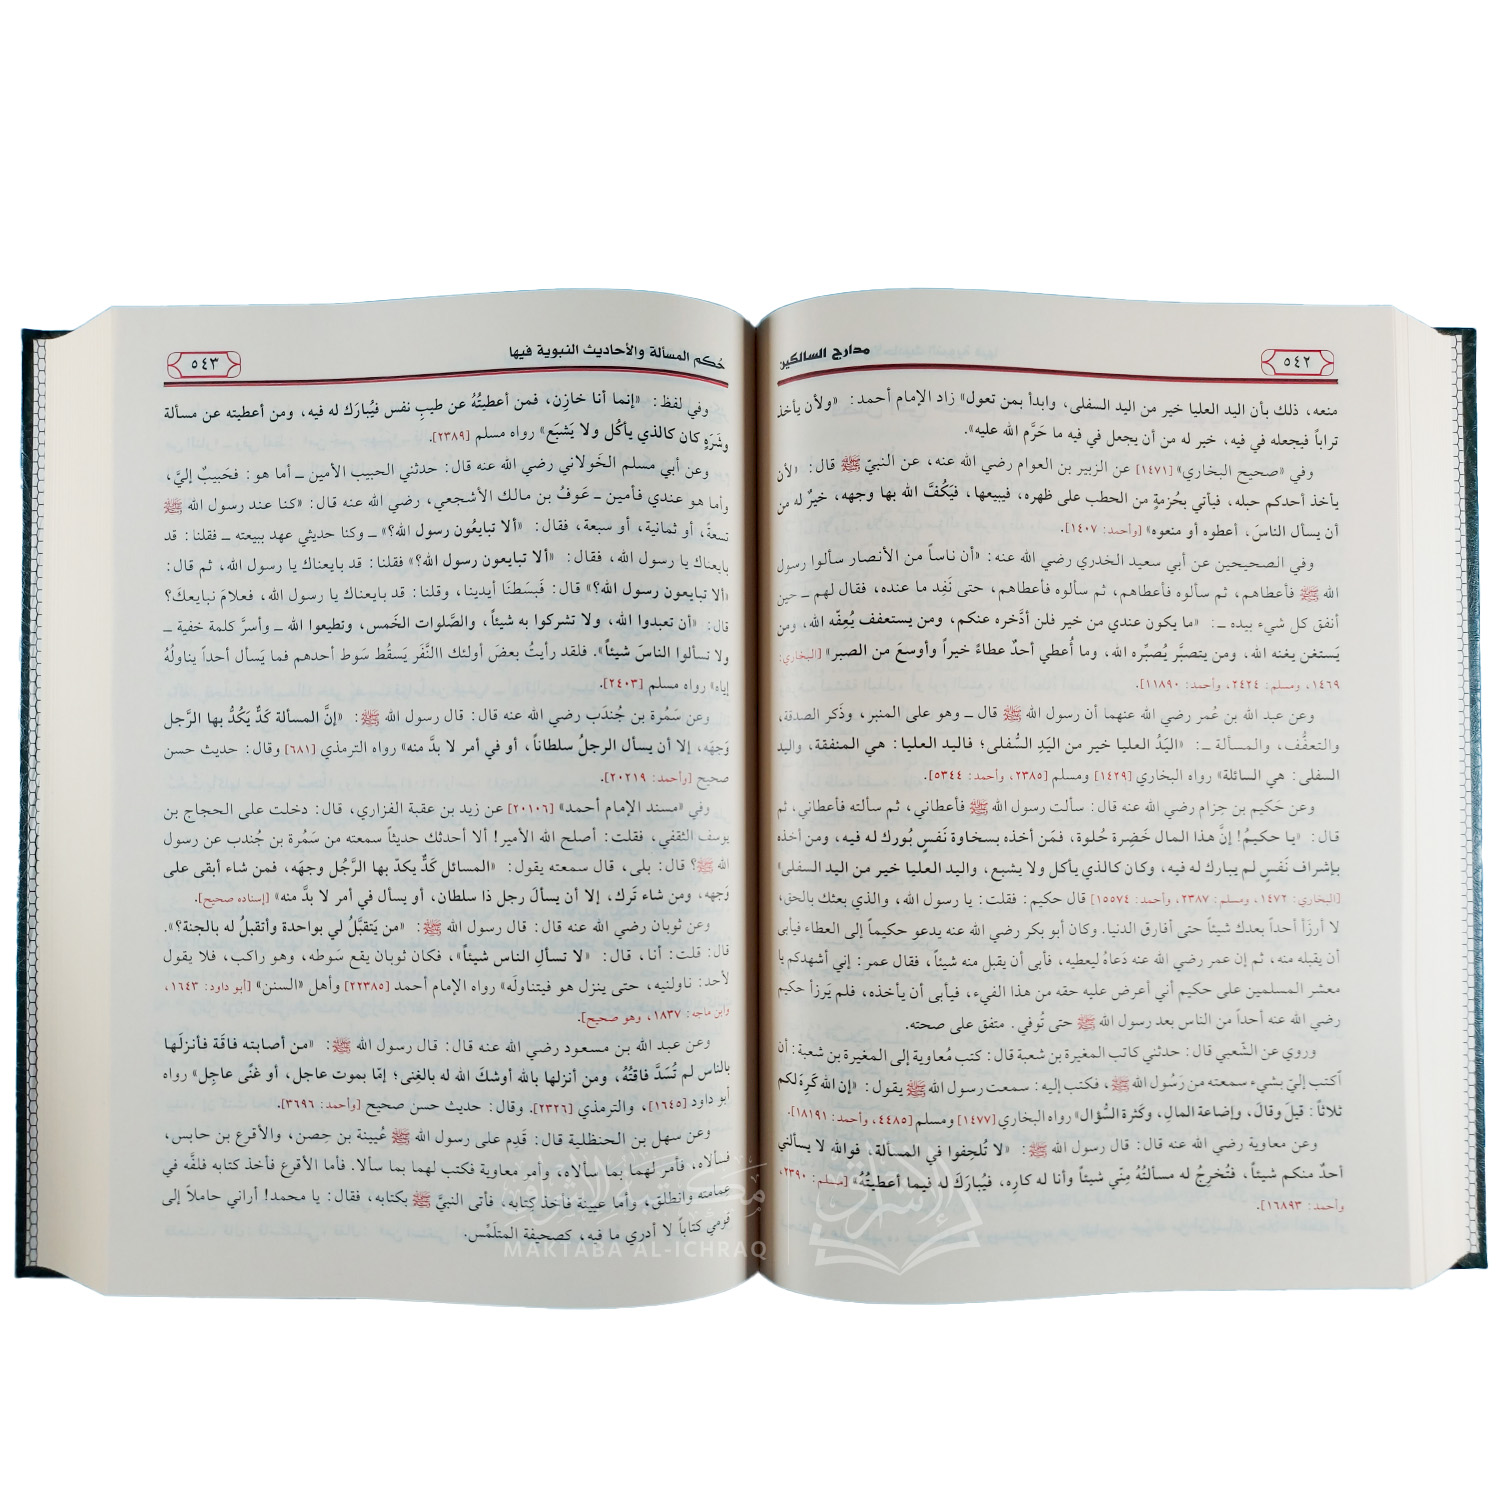 مدارج السالكين
٥٤٢
منعه، ذلك بأن اليد العليا خير من اليد السفلى، وابدأ بمن تعول» زاد الإمام أحمد: «ولأن يأخذ
تراباً فيجعله في فيه، خير له من أن يجعل في فيه ما حَرَّم الله عليه».
وفي «صحيح البخاري» [١٤٧١] عن الزبير بن العوام رضي الله عنه، عن النبيّ ﷺ قال: «لأن
يأخذ أحدكم حبله، فيأتي بحُزمةٍ من الحطب على ظهره، فيبيعها، فيَكُفَّ الله بها وجهه، خيرٌ له من
أن يسأل الناسَ، أعطوه أو منعوه» [وأحمد: ١٤٠٧].
وفي الصحيحين عن أبي سعيد الخدري رضي الله عنه: «أن ناساً من الأنصار سألوا رسول
الله ﷺ فأعطاهم، ثم سألوه فأعطاهم، ثم سألوه فأعطاهم، حتى نَفِد ما عنده، فقال لهم ـ حين
أنفق كل شيء بيده ـ: «ما يكون عندي من خير فلن أدَّخره عنكم، ومن يستعفف يُعِفّه الله، ومن
يَستغن يغنه الله، ومن يتصبَّر يُصبِّره الله، وما أُعطي أحدٌ عطاءً خيراً وأوسعَ من الصبر» [البخاري:
١٤٦٩، ومسلم: ٢٤٢٤، وأحمد: ١١٨٩٠].
وعن عبد الله بن عُمر رضي الله عنهما أن رسول الله ﷺ قال ـ وهو على المنبر، وذَكر الصدقة،
والتعفُّف، والمسألة ـ: «اليَدُ العليا خير من اليَدِ السُّفلى؛ فاليد العليا: هي المنفقة، واليد
السفلى: هي السائلة» رواه البخاري [١٤٢٩] ومسلم [٢٣٨٥، وأحمد: ٥٣٤٤].
وعن حَكيم بن حِزام رضي الله عنه قال: سألت رسول الله ﷺ فأعطاني، ثم سألته فأعطاني، ثم
قال: «يا حكيمُ! إنَّ هذا المال خَضِرة حُلوة، فمَن أخذه بسخاوة نَفسٍ بُورك له فيه، ومن أخذه
بإشراف نَفسٍ لم يبارك له فيه، وكان كالذي يأكل ولا يشبع، واليد العليا خير من اليد السفلى»
[البخاري: ١٤٧٢، ومسلم: ٢٣٨٧، وأحمد: ١٥٥٧٤] قال حكيم: فقلت: يا رسول الله، والذي بعثك بالحق،
لا أرزَأ أحداً بعدك شيئاً حتى أفارق الدنيا. وكان أبو بكر رضي الله عنه يدعو حكيماً إلى العطاء فيأبى
أن يقبله منه، ثم إن عمر رضي الله عنه دَعاهُ ليعطيه، فأبى أن يقبل منه شيئاً، فقال عمر: إني أشهدكم يا
معشر المسلمين على حكيم أني أعرض عليه حقه من هذا الفيء، فيأبى أن يأخذه، فلم يَرزأ حكيم
رضي الله عنه أحداً من الناس بعد رسول الله ﷺ حتى تُوفي. متفق على صحته.
وروي عن الشَّعبي قال: حدثني كاتب المغيرة بن شعبة قال: كتب مُعاوية إلى المغيرة بن شعبة: أن
اكتب إليّ بشيء سمعته من رَسُول الله ﷺ، فكتب إليه: سمعت رسول الله ﷺ يقول: «إن الله كَرِهَ لكم
ثلاثاً: قيلَ وقالَ، وإضاعة المالِ، وكثرة السُّؤال» رواه البخاري [١٤٧٧] ومسلم [٤٤٨٥، وأحمد: ١٨١٩١].
وعن معاوية رضي الله عنه قال: قال رسول الله ﷺ: «لا تُلحِفوا في المسألة، فوالله لا يسألني
أحدٌ منكم شيئاً، فتُخرِجُ له مسألتُهُ مِنّي شيئاً وأنا له كاره، فيُبارَكَ له فيما أعطيتُهُ» [مسلم: ٢٣٩٠،
وأحمد: ١٦٨٩٣].
حُكم المسألة والأحاديث النبوية فيها
٥٤٣
وفي لفظ: «إنما أنا خازِن، فمن أعطيتُهُ عن طيبِ نفس فيُبارَك له فيه، ومن أعطيته عن مسألة
وشَرَهٍ كان كالذي يأكُل ولا يَشبَع» رواه مسلم [٢٣٨٩].
وعن أبي مسلم الخَولاني رضي الله عنه قال: حدثني الحبيب الأمين ـ أما هو: فحَبيبٌ إليَّ،
وأما هو عندي فأمين ـ عَوفُ بن مالك الأشجعي، رضي الله عنه قال: «كنا عند رسول الله ﷺ
تسعةً، أو ثمانية، أو سبعة، فقال: «ألا تبايعُون رسول الله؟» ـ وكنا حديثي عهد ببيعته ـ فقلنا: قد
بايعناك يا رسول الله، فقال: «ألا تبايعون رسول الله؟» فقلنا: قد بايعناك يا رسول الله، ثم قال:
«ألا تبايعون رسول الله؟» قال: فَبَسطنَا أيدينا، وقلنا: قد بايعناك يا رسول الله، فعلامَ نبايعكَ؟
قال: «أن تعبدوا الله، ولا تشركوا به شيئاً، والصَّلوات الخَمس، وتطيعوا الله ـ وأسرَّ كلمة خفية ـ
ولا تسألوا الناسَ شيئاً». فلقد رأيتُ بعضَ أولئك االنَّفَر يَسقُط سَوط أحدهم فما يَسأل أحداً يناولُهُ
إياه» رواه مسلم [٢٤٠٣].
وعن سَمُرة بن جُندَب رضي الله عنه قال: قال رسول الله ﷺ: «إنَّ المسألة كَدٌّ يَكُدُّ بها الرَّجل
وَجهَه، إلا أن يسأل الرجلُ سلطاناً، أو في أمر لا بدَّ منه» رواه الترمذي [٦٨١] وقال: حديث حسن
صحيح [وأحمد: ٢٠٢١٩].
وفي «مسند الإمام أحمد» [٢٠١٠٦] عن زيد بن عقبة الفزاري، قال: دخلت على الحجاج بن
يوسف الثقفي، فقلت: أصلح الله الأمير! ألا أحدثك حديثاً سمعته من سَمُرة بن جُندب عن رسول
الله ﷺ؟ قال: بلى، قال سمعته يقول: «المسائل كَدٌّ يكدّ بها الرَّجُل وجهَه، فمن شاء أبقى على
وَجهه، ومن شاء تَرك، إلا أن يسألَ رجل ذا سلطان، أو يسأل في أمر لا بدَّ منه» [إسناده صحيح].
وعن ثوبان رضي الله عنه قال: قال رسول الله ﷺ: «من يَتقبَّلُ لي بواحدة وأتقبلُ له بالجنة؟».
قال: قلت: أنا، قال: «لا تسألِ الناس شيئاً»، فكان ثوبان يقع سَوطه، وهو راكب، فلا يقول
لأحد: ناولنيه، حتى ينزل هو فيتناولَه» رواه الإمام أحمد [٢٢٣٨٥] وأهل «السنن» [أبو داود: ١٦٤٣،
وابن ماجه: ١٨٣٧، وهو صحيح].
وعن عبد الله بن مسعود رضي الله عنه قال: قال رسول الله ﷺ: «من أصابته فاقَة فأنزلَها
بالناس لم تُسَدَّ فاقتُهُ، ومن أنزلها بالله أوشكَ الله له بالغِنى؛ إمّا بموت عاجل، أو غنًى عاجِل» رواه
أبو داود [١٦٤٥]، والترمذي [٢٣٢٦]. وقال: حديث حسن صحيح [وأحمد: ٣٦٩٦].
وعن سهل بن الحنظلية قال: قَدِم على رسول الله ﷺ عُيينة بن حِصن، والأقرع بن حابس،
فسألاه، فأمر لهما بما سألاه، وأمر معاوية فكتب لهما بما سألا. فأما الأقرع فأخذ كتابه فلفَّه في
عمامته وانطلق، وأما عيينة فأخذ كِتابه، فأتى النبيَّ ﷺ بكتابه، فقال: يا محمد! أراني حاملاً إلى
قومي كتاباً لا أدري ما فيه، كصحيفة المتلمِّس.
مكتبة الإشراق
MAKTABA AL-ICHRAQ
الإشراق